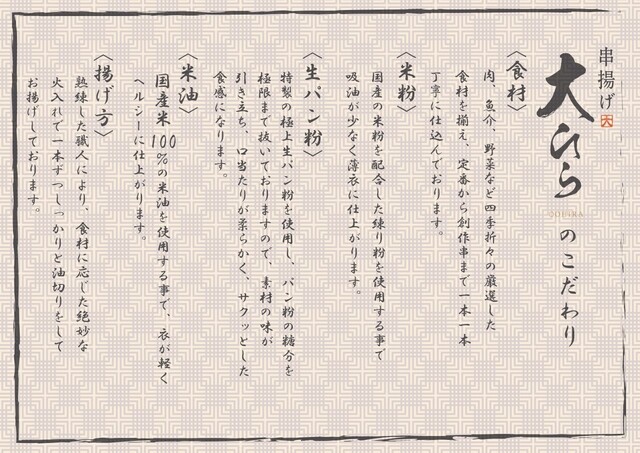 串揚げ 大
大ひら
のこだわり
〈食材〉
肉、魚介、野菜など四季折々の厳選した
食材を揃え、定番から創作串まで一本一本
丁寧に仕込んでおります。
〈米粉〉
国産の米粉を配合した練り粉を使用する事で
吸油が少なく薄衣に仕上がります。
〈生パン粉〉
特製の極上生パン粉を使用し、パン粉の糖分を
極限まで抜いておりますので、素材の味が
引き立ち、口当たりが柔らかく、サクッとした
食感になります。
〈米油〉
国産米100%の米油を使用する事で、衣が軽く
ヘルシーに仕上がります。
〈揚げ方〉
熟練した職人により、食材に応じた絶妙な
火入れで一本ずつしっかりと油切りをして
お揚げしております。